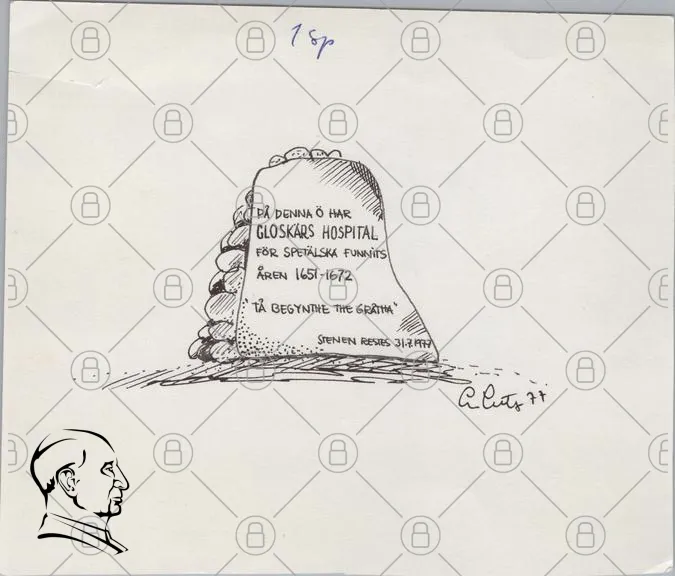 1 sp
PÅ DENNA Ö HAR
GLOSKÄRS HOSPITAL
FÖR SPETÄLSKA FUNNITS
ÅREN 1651-1672
"TÅ BEGYNTHE THE GRÅTHA"
STENEN RESTES 31.7.1977
77